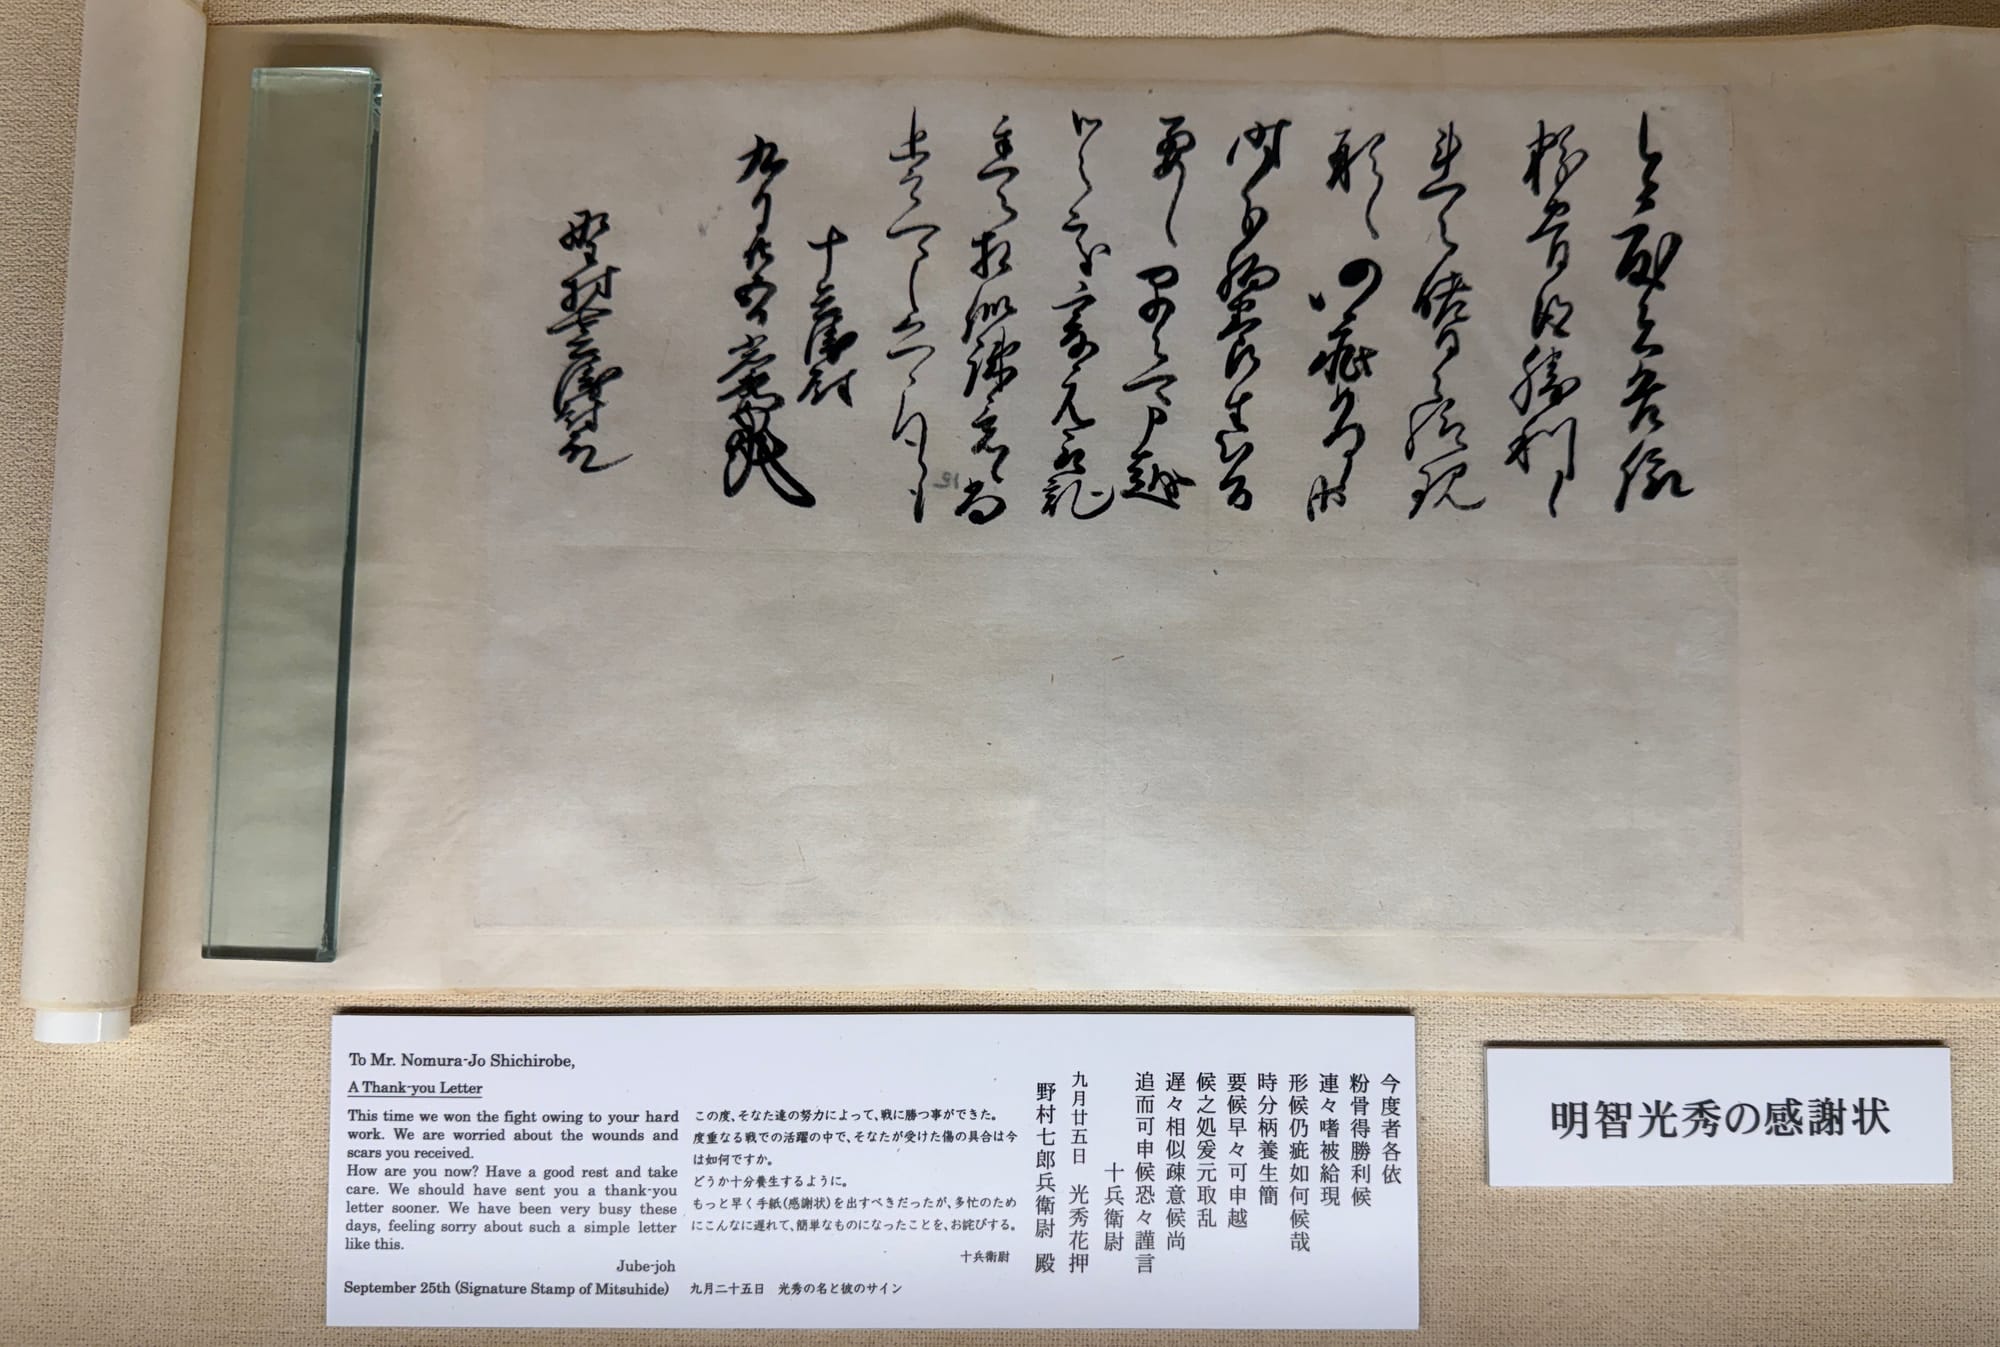 今度者各依
粉骨得勝利候
連々嗜被給現
形候仍疵如何候哉
時分柄養生簡
要候早々可申越
候之処爰元取乱
遅々相似疎意候尚
追而可申候恐々謹言
十兵衛尉
九月廿五日 光秀花押
野村七郎兵衛尉 殿
To Mr. Nomura-Jo Shichirobe,
A Thank-you Letter
This time we won the fight owing to your hard
work. We are worried about the wounds and
scars you received.
How are you now? Have a good rest and take
care. We should have sent you a thank-you
letter sooner. We have been very busy these
days, feeling sorry about such a simple letter
like this.
Jube-joh
September 25th (Signature Stamp of Mitsuhide)
この度、そなた達の努力によって、戦に勝つ事ができた。
度重なる戦での活躍の中で、そなたが受けた傷の具合は今
は如何ですか。
どうか十分養生するように。
もっと早く手紙(感謝状)を出すべきだったが、多忙のため
にこんなに遅れて、簡単なものになったことを、お詫びする。
十兵衛尉
九月二十五日 光秀の名と彼のサイン
今度者各依
粉骨得勝利候
連々嗜被給現
形候仍疵如何候哉
時分柄養生簡
要候早々可申越
候之処爰元取乱
遅々相似疎意候尚
追而可申候恐々謹言
十兵衛尉
九月廿五日 光秀花押
野村七郎兵衛尉 殿
明智光秀の感謝状